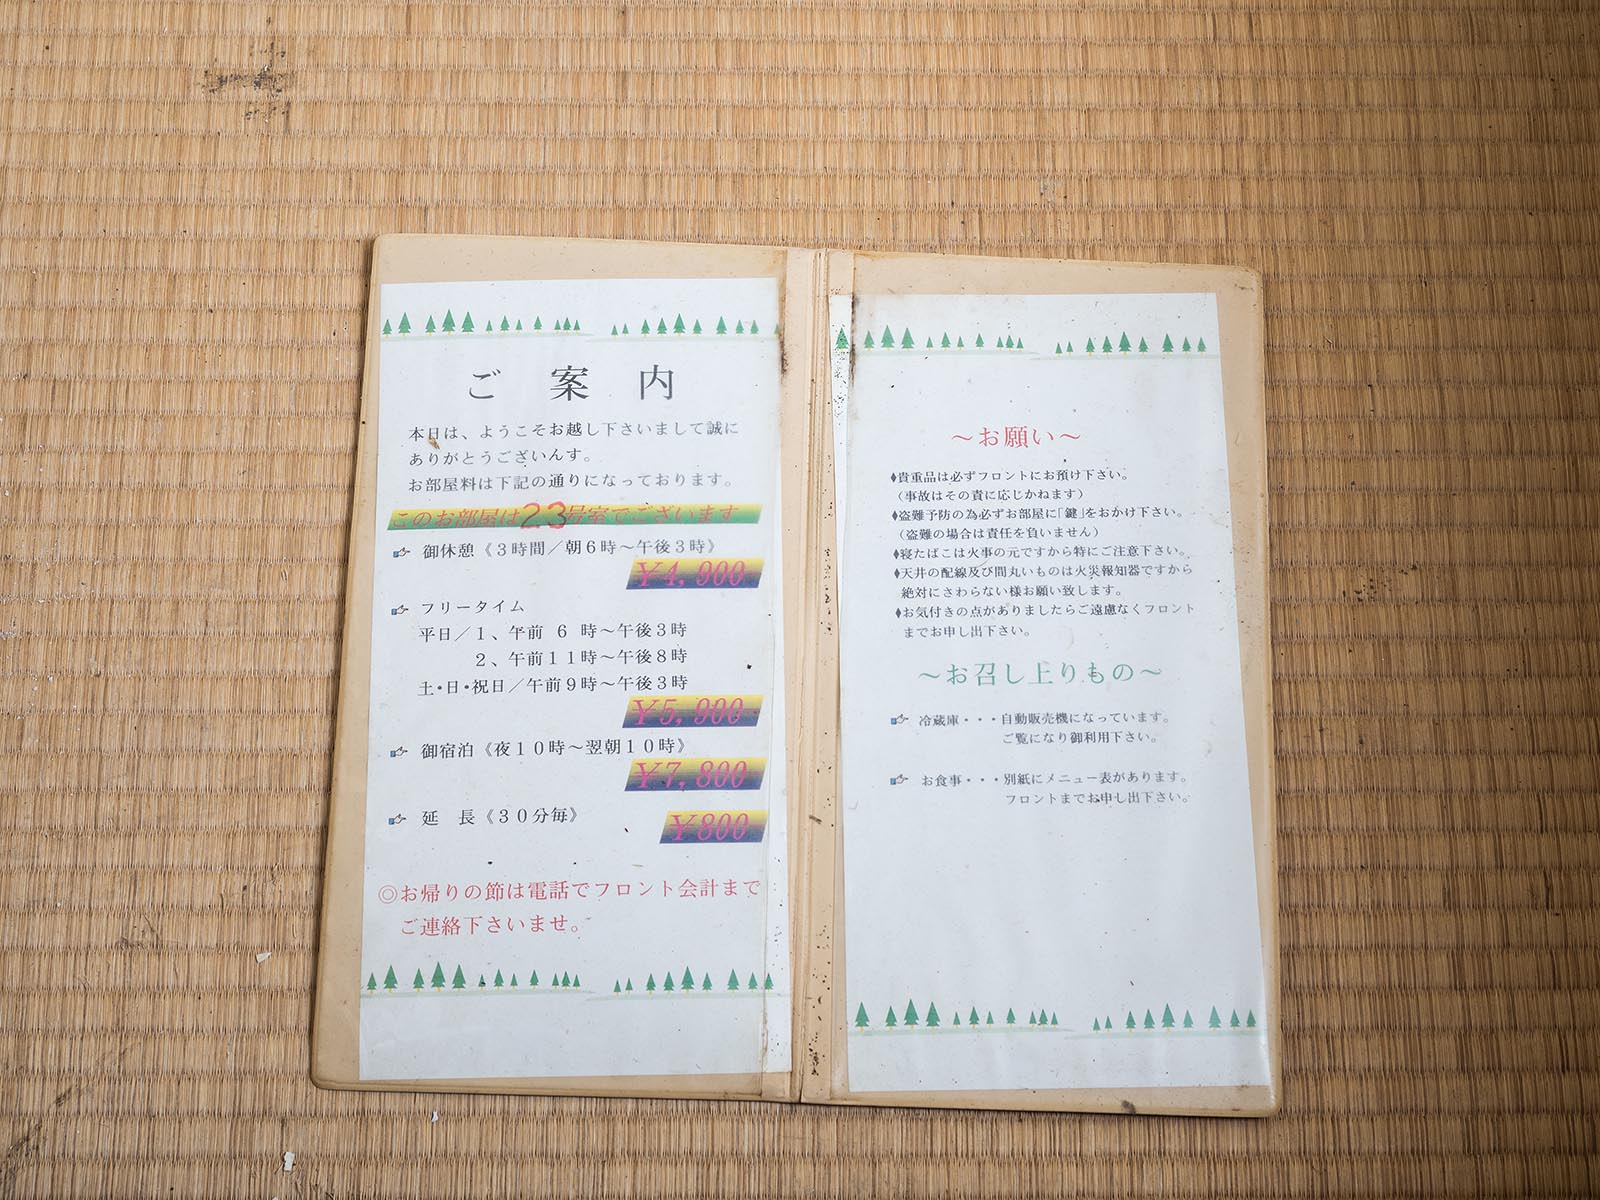 ご案内
本日は、ようこそお越し下さいまして誠に
ありがとうございんす。
お部屋料は下記の通りになっております。
このお部屋は23号室でございます
御休憩《３時間／朝６時～午後３時》
￥4,900
フリータイム
平日／１、午前 ６ 時～午後３時
２、午前１１時～午後８時
土・日・祝日／午前９時～午後３時
￥5,900
御宿泊《夜１０時～翌朝１０時》
￥7,800
延　長《３０分毎》
￥800
◎お帰りの節は電話でフロント会計まで
ご連絡下さいませ。
～お願い～
♦貴重品は必ずフロントにお預け下さい。
（事故はその責に応じかねます）
♦盗難予防の為必ずお部屋に「鍵」をおかけ下さい。
（盗難の場合は責任を負いません）
♦寝たばこは火事の元ですから特にご注意下さい。
♦天井の配線及び間丸いものは火災報知器ですから
絶対にさわらない様お願い致します。
♦お気付きの点がありましたらご遠慮なくフロント
までお申し出下さい。
～お召し上りもの～
冷蔵庫・・・自動販売機になっています。
ご覧になり御利用下さい。
お食事・・・別紙にメニュー表があります。
フロントまでお申し出下さい。